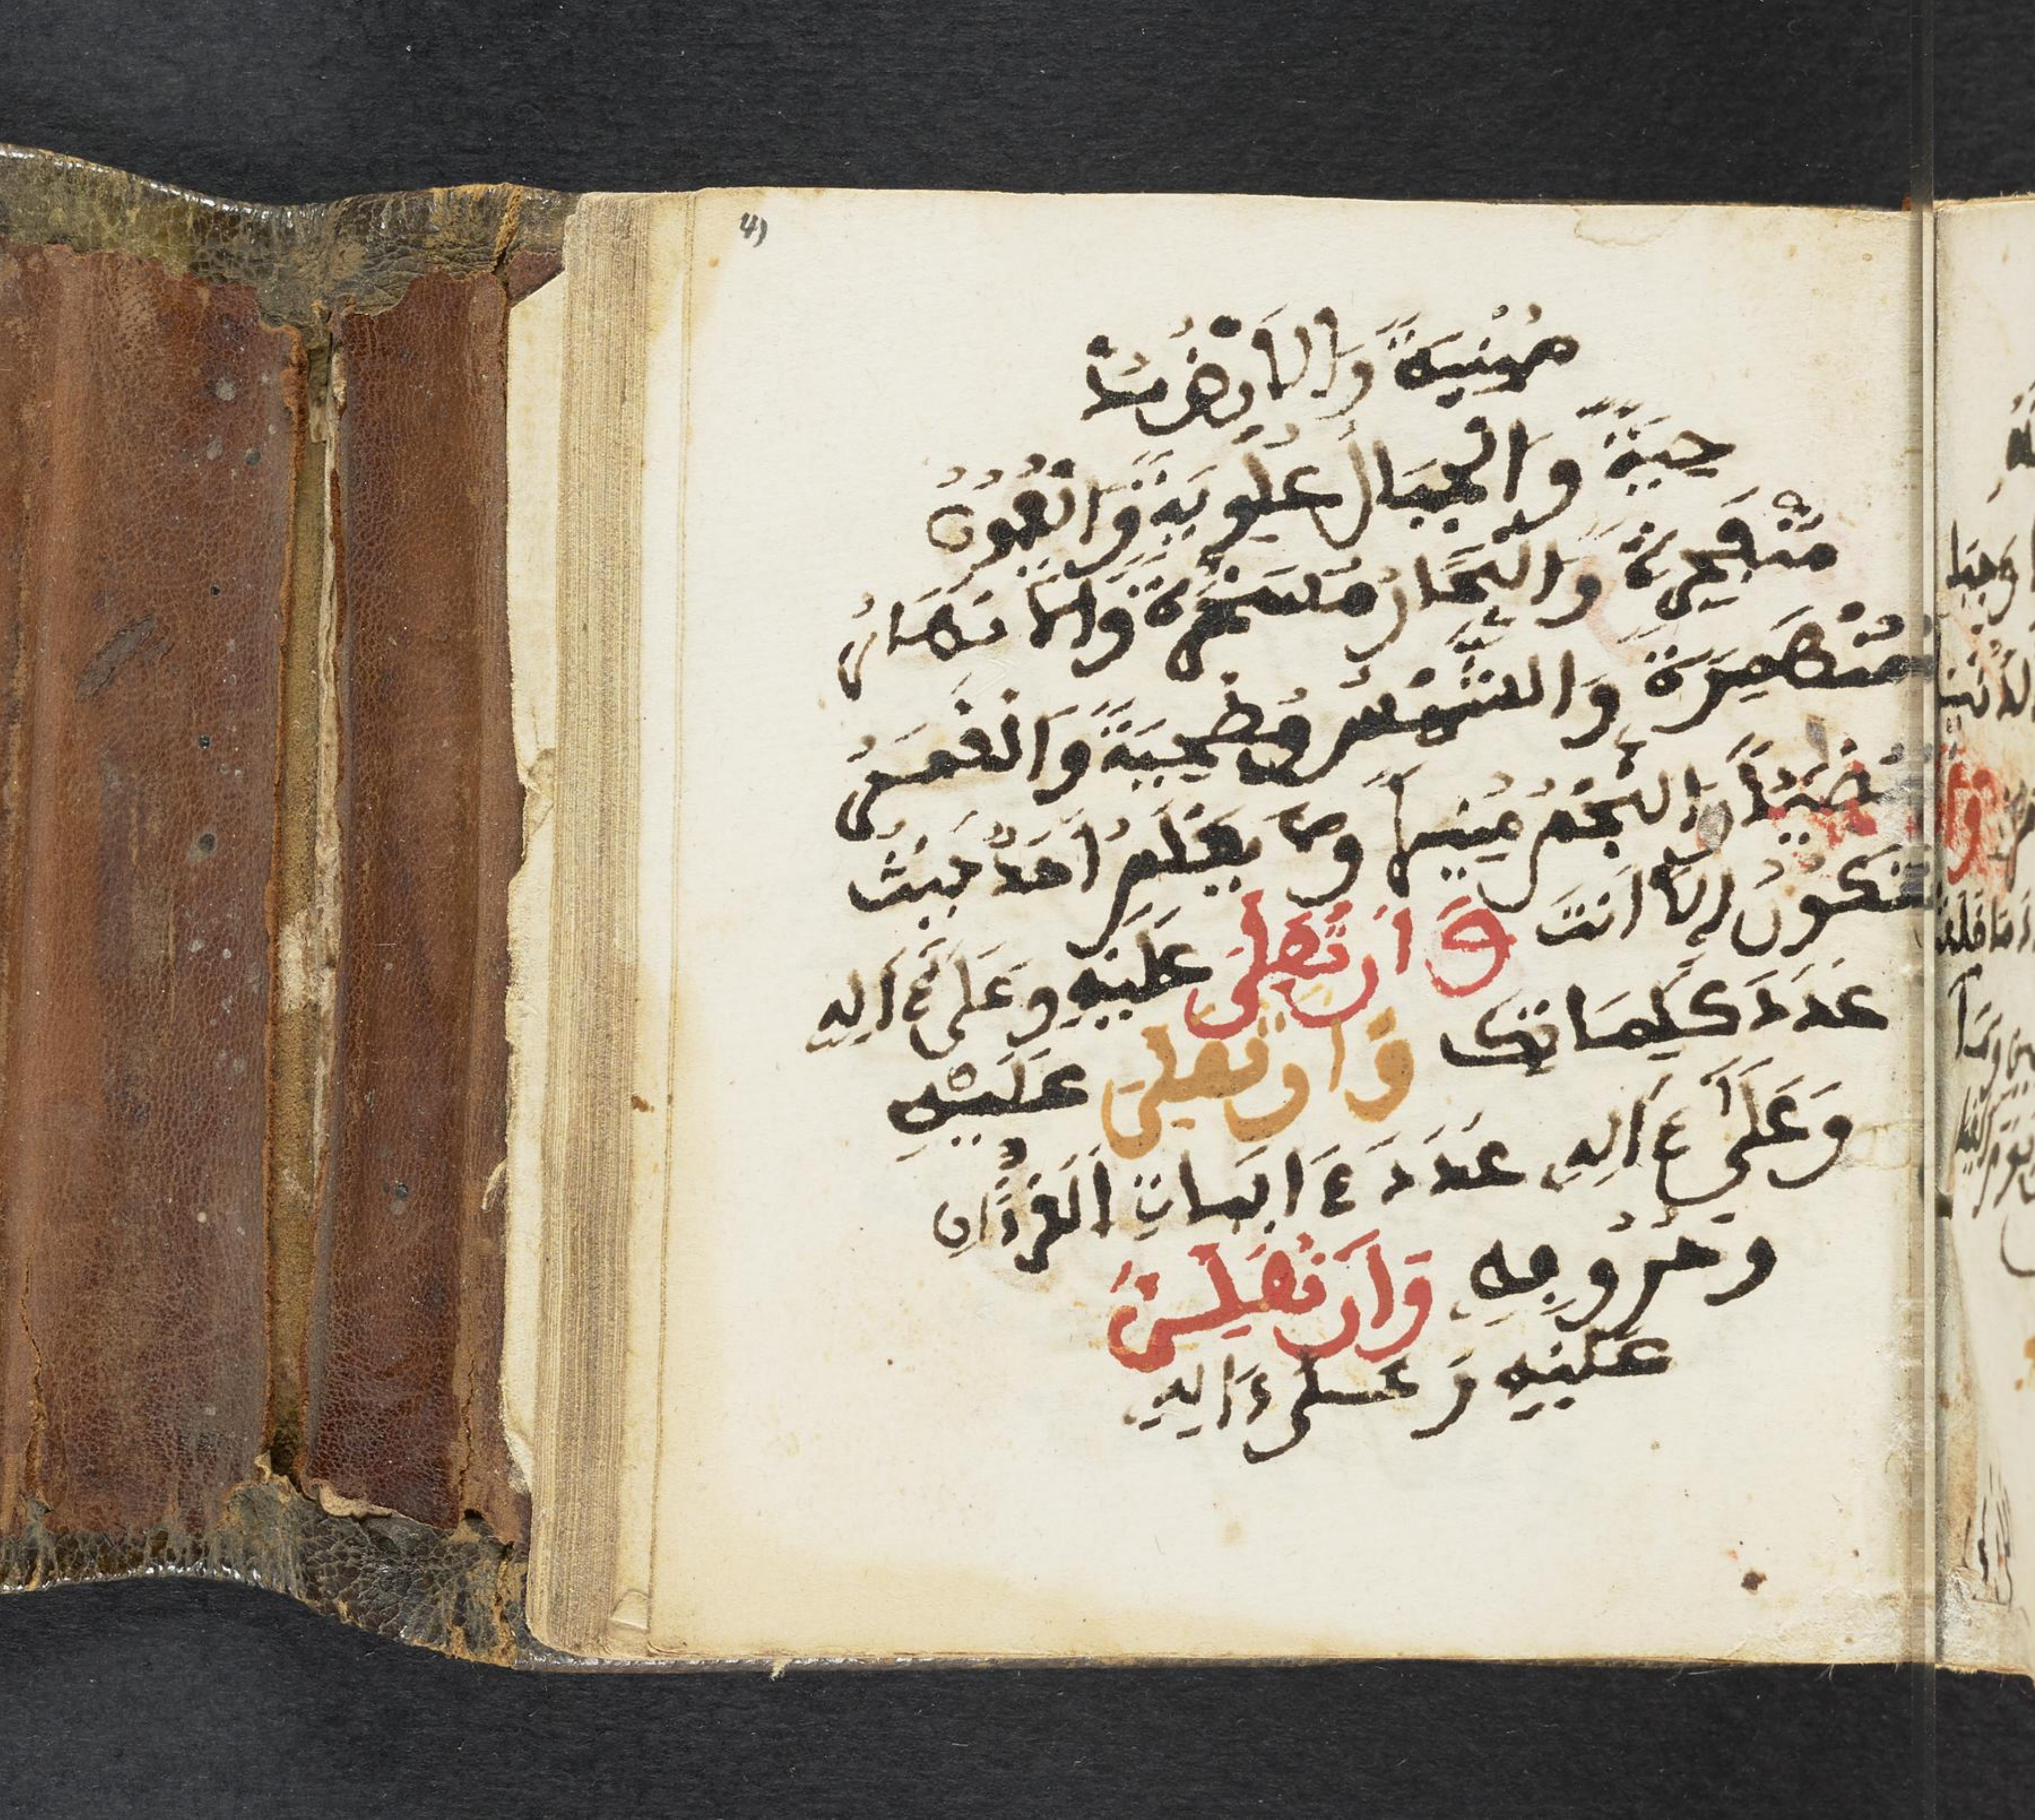 41
مُبْنِيَةً وَالْأَرْضُ مَدْ
حِيَّةً وَالْجِبَالُ عُلْوِيَةً وَالْعُيُونُ
مُنْفَجِرَةً وَالْبِحَارُ مُسَخَّرَةً وَالْأَنْهَارُ
مُنْهَمِرَةً وَالشَّمْسُ مُضْحِيَةً وَالْقَمَرُ
مُضِيئًا وَالنَّجْمُ مُنِيرًا وَلَا يَعْلَمُ أَحَدٌ حَيْثُ
تَكُونُ إِلَّا أَنْتَ وَأَن تُصَلِّيَ عَلَيْهِ وَعَلَىٰ ءَالِهِ
عَدَدَ كَلِمَاتِكَ وَأَن تُصَلِّيَ عَلَيْهِ
وَعَلَىٰ ءَالِهِ عَدَدَ ءَايَاتِ الْقُرْءَانِ
وَحُرُوفِهِ وَأَن تُصَلِّيَ
عَلَيْهِ وَعَلَىٰ ءَالِهِ